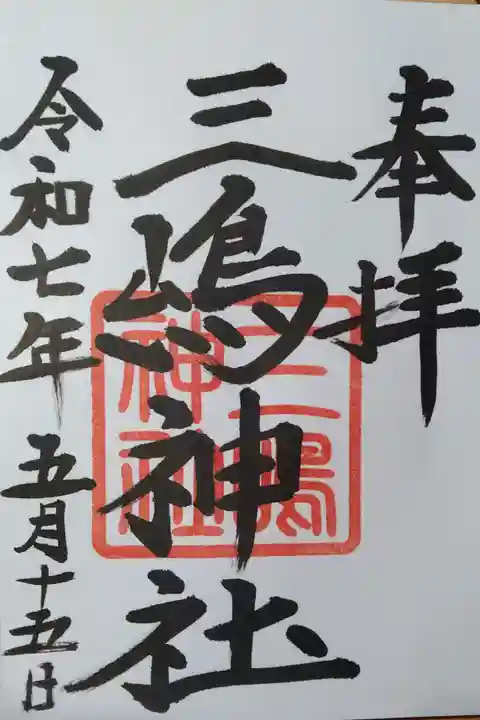 奉拝
三嶋神社
令和七年五月十五日
三嶋
神社